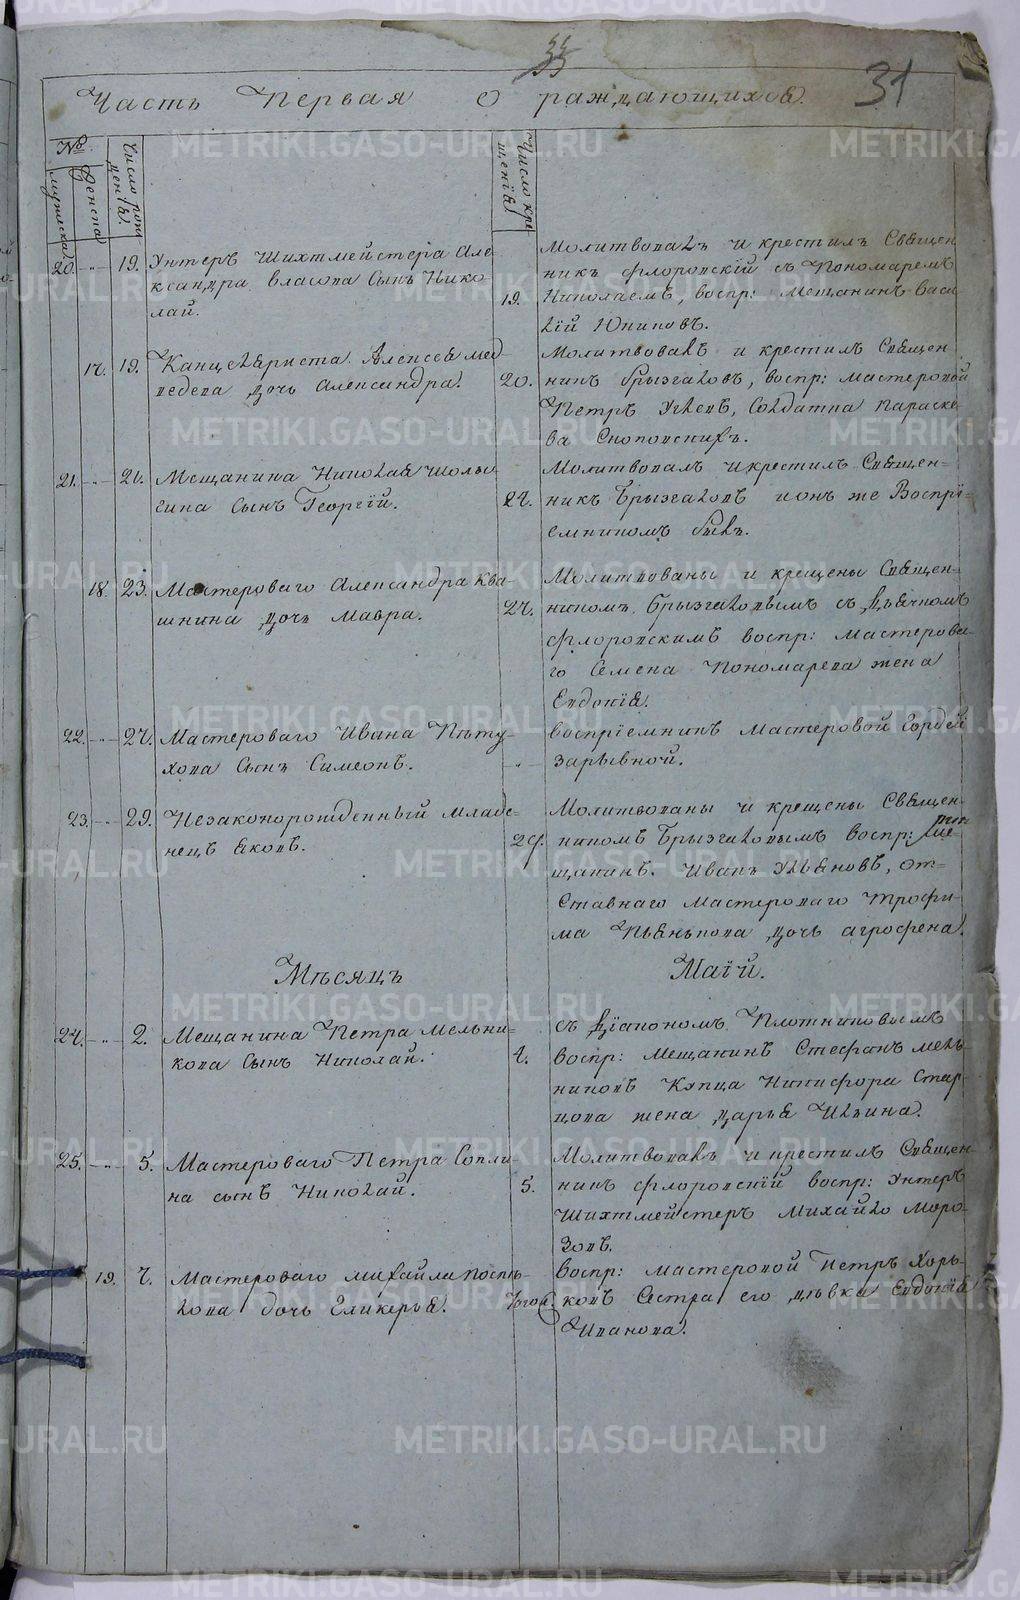 33
31
Часть Первая о раждающихся.
№
мужеска
женска
Число рож
денія.
Число кре
щенія
20. -"- 19. Унтеръ Шихтмейстера Але
ксандра Власова Сынъ Нико
лай.
19.
Молитвовалъ и крестилъ Священ
никъ Флоровскій съ Пономаремъ
Николаемъ, воспр: Мещанинъ Васи
лій Юниновъ.
17. 19. Канцеляриста Алексея Мед
ведева дочь Александра.
20.
Молитвовалъ и крестилъ Священ
никъ Брызгаловъ, воспр: Мастеровой
Петръ Углевъ, Солдатка Параске
ва
21. -"- 21. Мещанина Николая
Сынъ Георгій.
Молитвовалъ и крестилъ Священ=
никъ Брызгаловъ и онъ же Воспрі=
емникомъ былъ.
18. 23. Мастероваго Александра Ква-
шнина дочь Мавра.
27.
Молитвованы и крещены Священ-
никомъ Брызгаловымъ съ Дьячкомъ
Флоровскимъ воспр: Мастерова-
го Семена Пономарева жена
Евдокія.
22. -"- 27. Мастероваго Ивана Пѣту-
хова Сынъ Симеонъ.
-"-
воспріемникъ Мастеровой Гордей
Зарывной.
23. -"- 29. Незаконорожденный младе-
нецъ Яковъ.
29.
Молитвованы и крещены Священ-
никомъ Брызгаловымъ воспр: Ме-
щанинъ Иванъ Ульяновъ, от-
ставнаго Мастероваго Трофи-
ма Пьянькова дочь Агрофена.
Мѣсяцъ Маій.
24. -"- 2. Мещанина Петра Мельни-
кова Сынъ Николай.
4.
съ Діакономъ Плотниковымъ
воспр: Мещанинъ Стефанъ Мель
никовъ Купца Никифора Стар
цова жена Дарья Ильина.
25. -"- 5. Мастероваго Петра Сопли-
на сынъ Николай.
5.
Молитвовалъ и крестилъ Священ
никъ Флоровскій воспр: Унтеръ
Шихтмейстеръ Михайло Моро-
зовъ.
19. 7. Мастероваго Михайла Поспѣ-
лова дочь Гликерья.
воспр: Мастеровой Петръ Хорь
ковъ Сестра его дѣвка Евдокія
Иванова.
METRIKI.GASO-URAL.RU